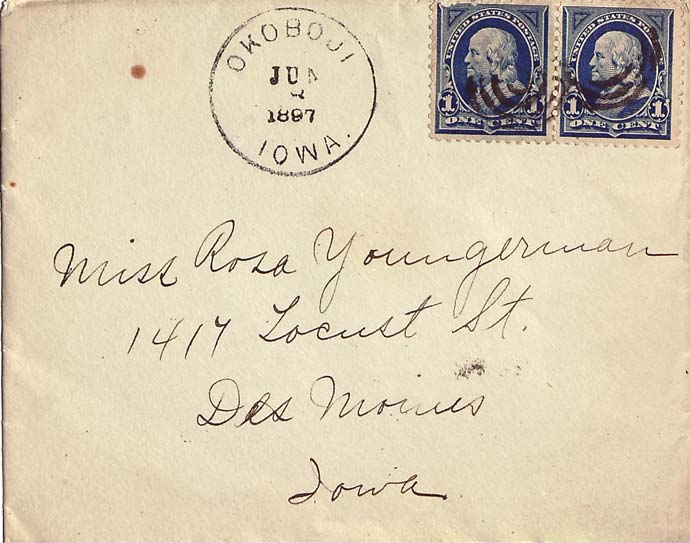 OKOBOJI
JUN
1897
IOWA.
UNITED STATES POSTAGE
1 1
ONE CENT
UNITED STATES POSTAGE
1 1
ONE CENT
Miss Rosa Youngerman
1417 Locust St.
Des Moines
Iowa.